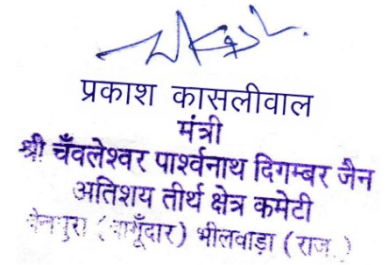 प्रकाश कासलीवाल
मंत्री
श्री चँवलेश्वर पार्श्वनाथ दिगम्बर जैन
अतिशय तीर्थ क्षेत्र कमेटी
(बागूँदार) भीलवाड़ा (राज.)